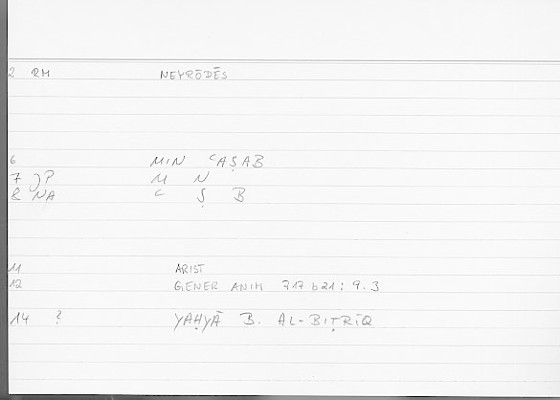 2 RM NEYRŌDĒS
6 MIN ʿAṢAB
7 JP M N
8 NA ʿ Ṣ B
11 ARIST
12 GENER ANIM 717 b21 : 9.3
14 ? YAḤYĀ B. AL-BIṬRĪQ